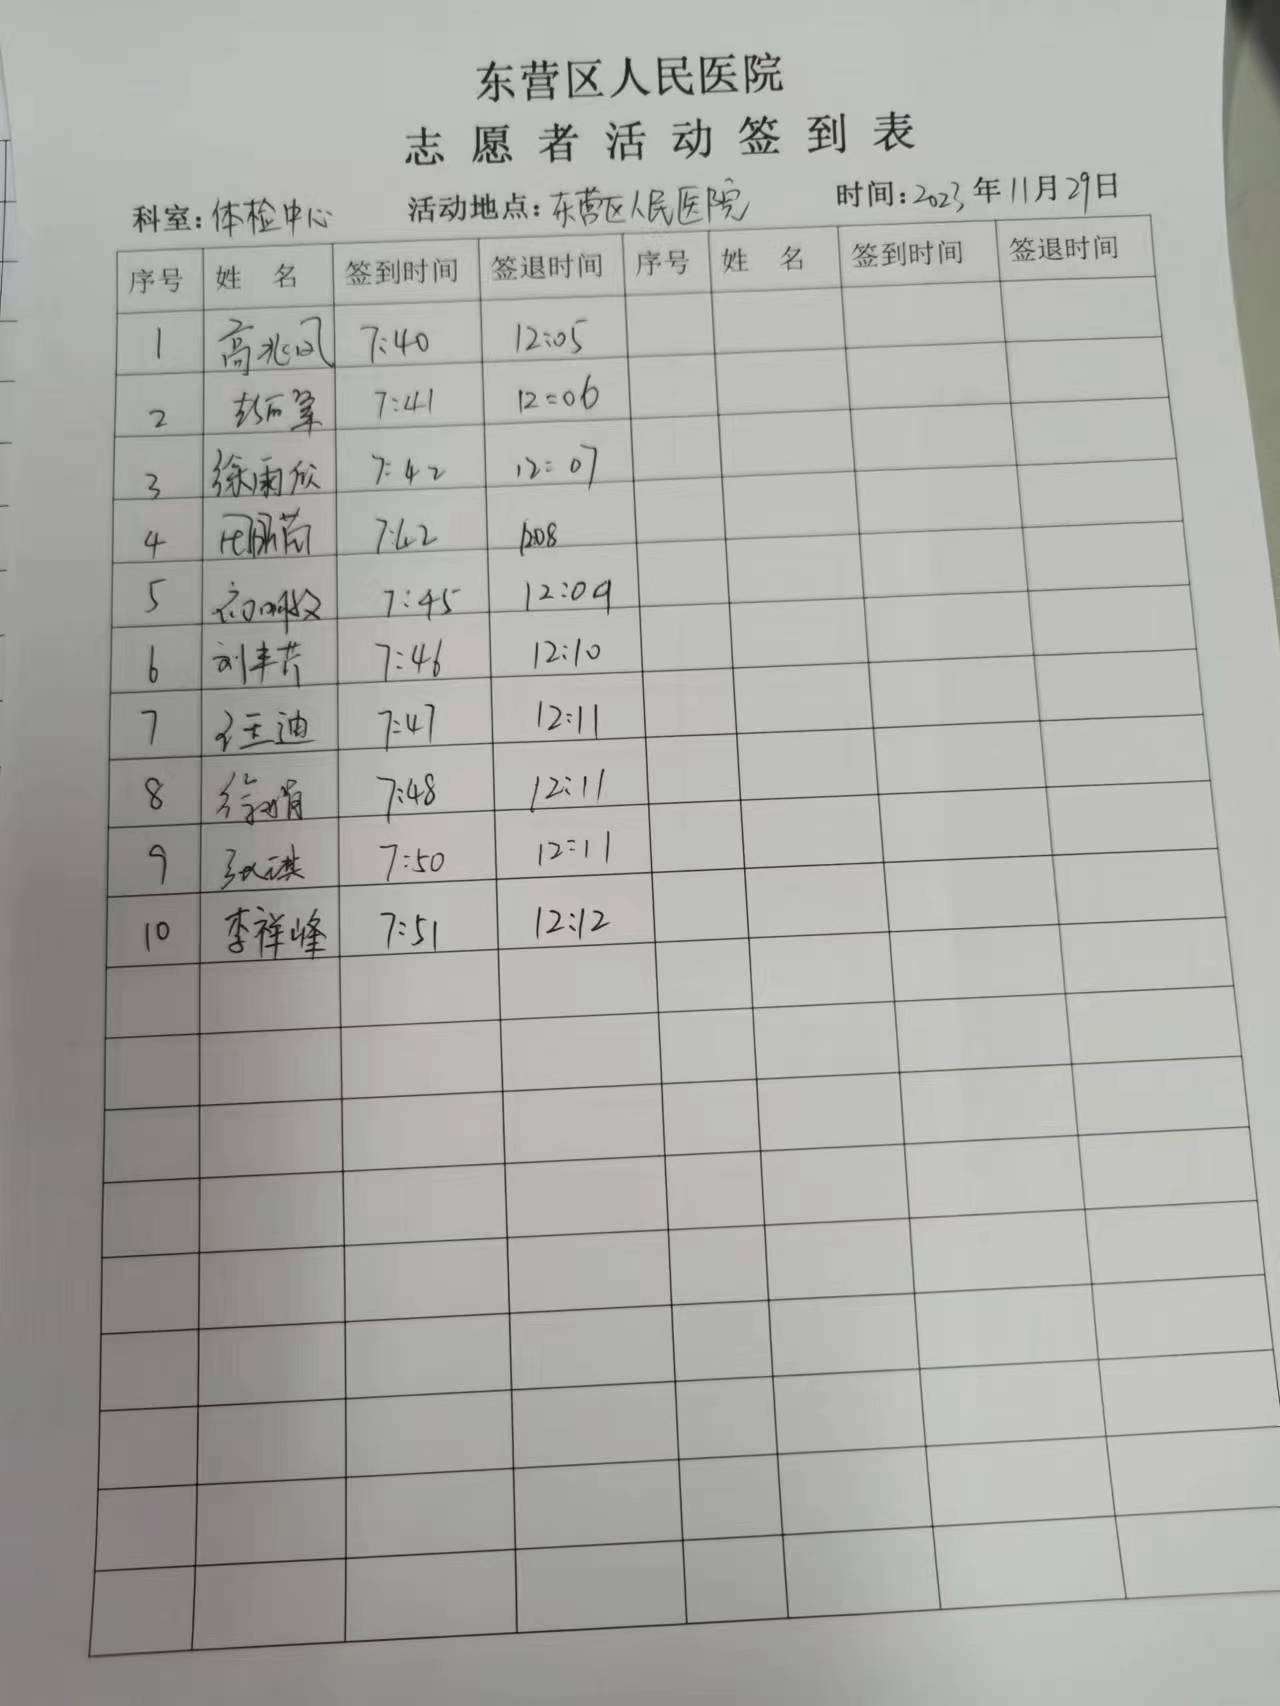 东营区人民医院
志愿者活动签到表
科室：体检中心 活动地点：东营区人民医院 时间：2023年11月29日
序号 姓名 签到时间 签退时间 序号 姓名 签到时间 签退时间
1 高兆凤 7:40 12:05
2 7:41 12:06
3 徐雨欣 7:42 12:07
4 7:42 1208
5 7:45 12:09
6 刘丰芹 7:46 12:10
7 迪 7:47 12:11
8 徐 7:48 12:11
9 张祺 7:50 12:11
10 李祥峰 7:51 12:12